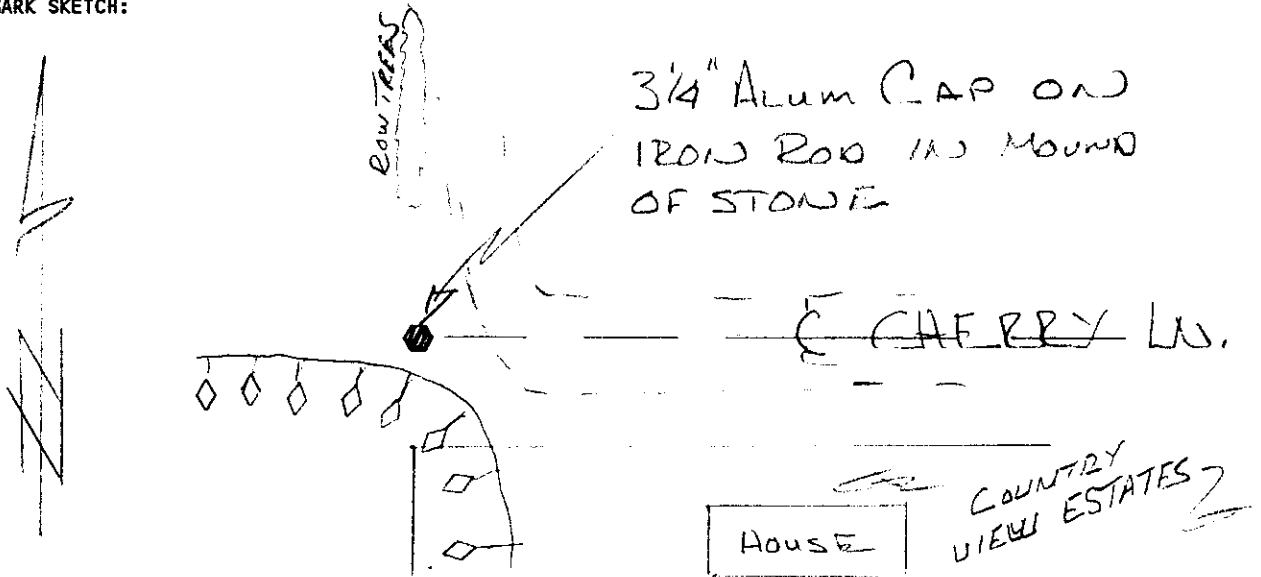 ARK SKETCH:
ROW TREES
3 1/4" ALUM CAP ON
IRON ROD IN MOUND
OF STONE
℄ CHERRY LN.
COUNTRY
VIEW ESTATES 2
HOUSE
N